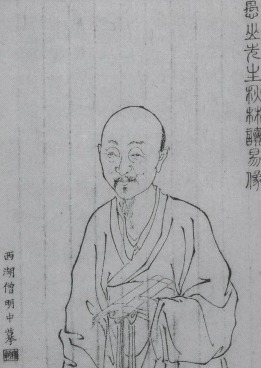 愚山先生秋林讀易像
西湖僧明中摹